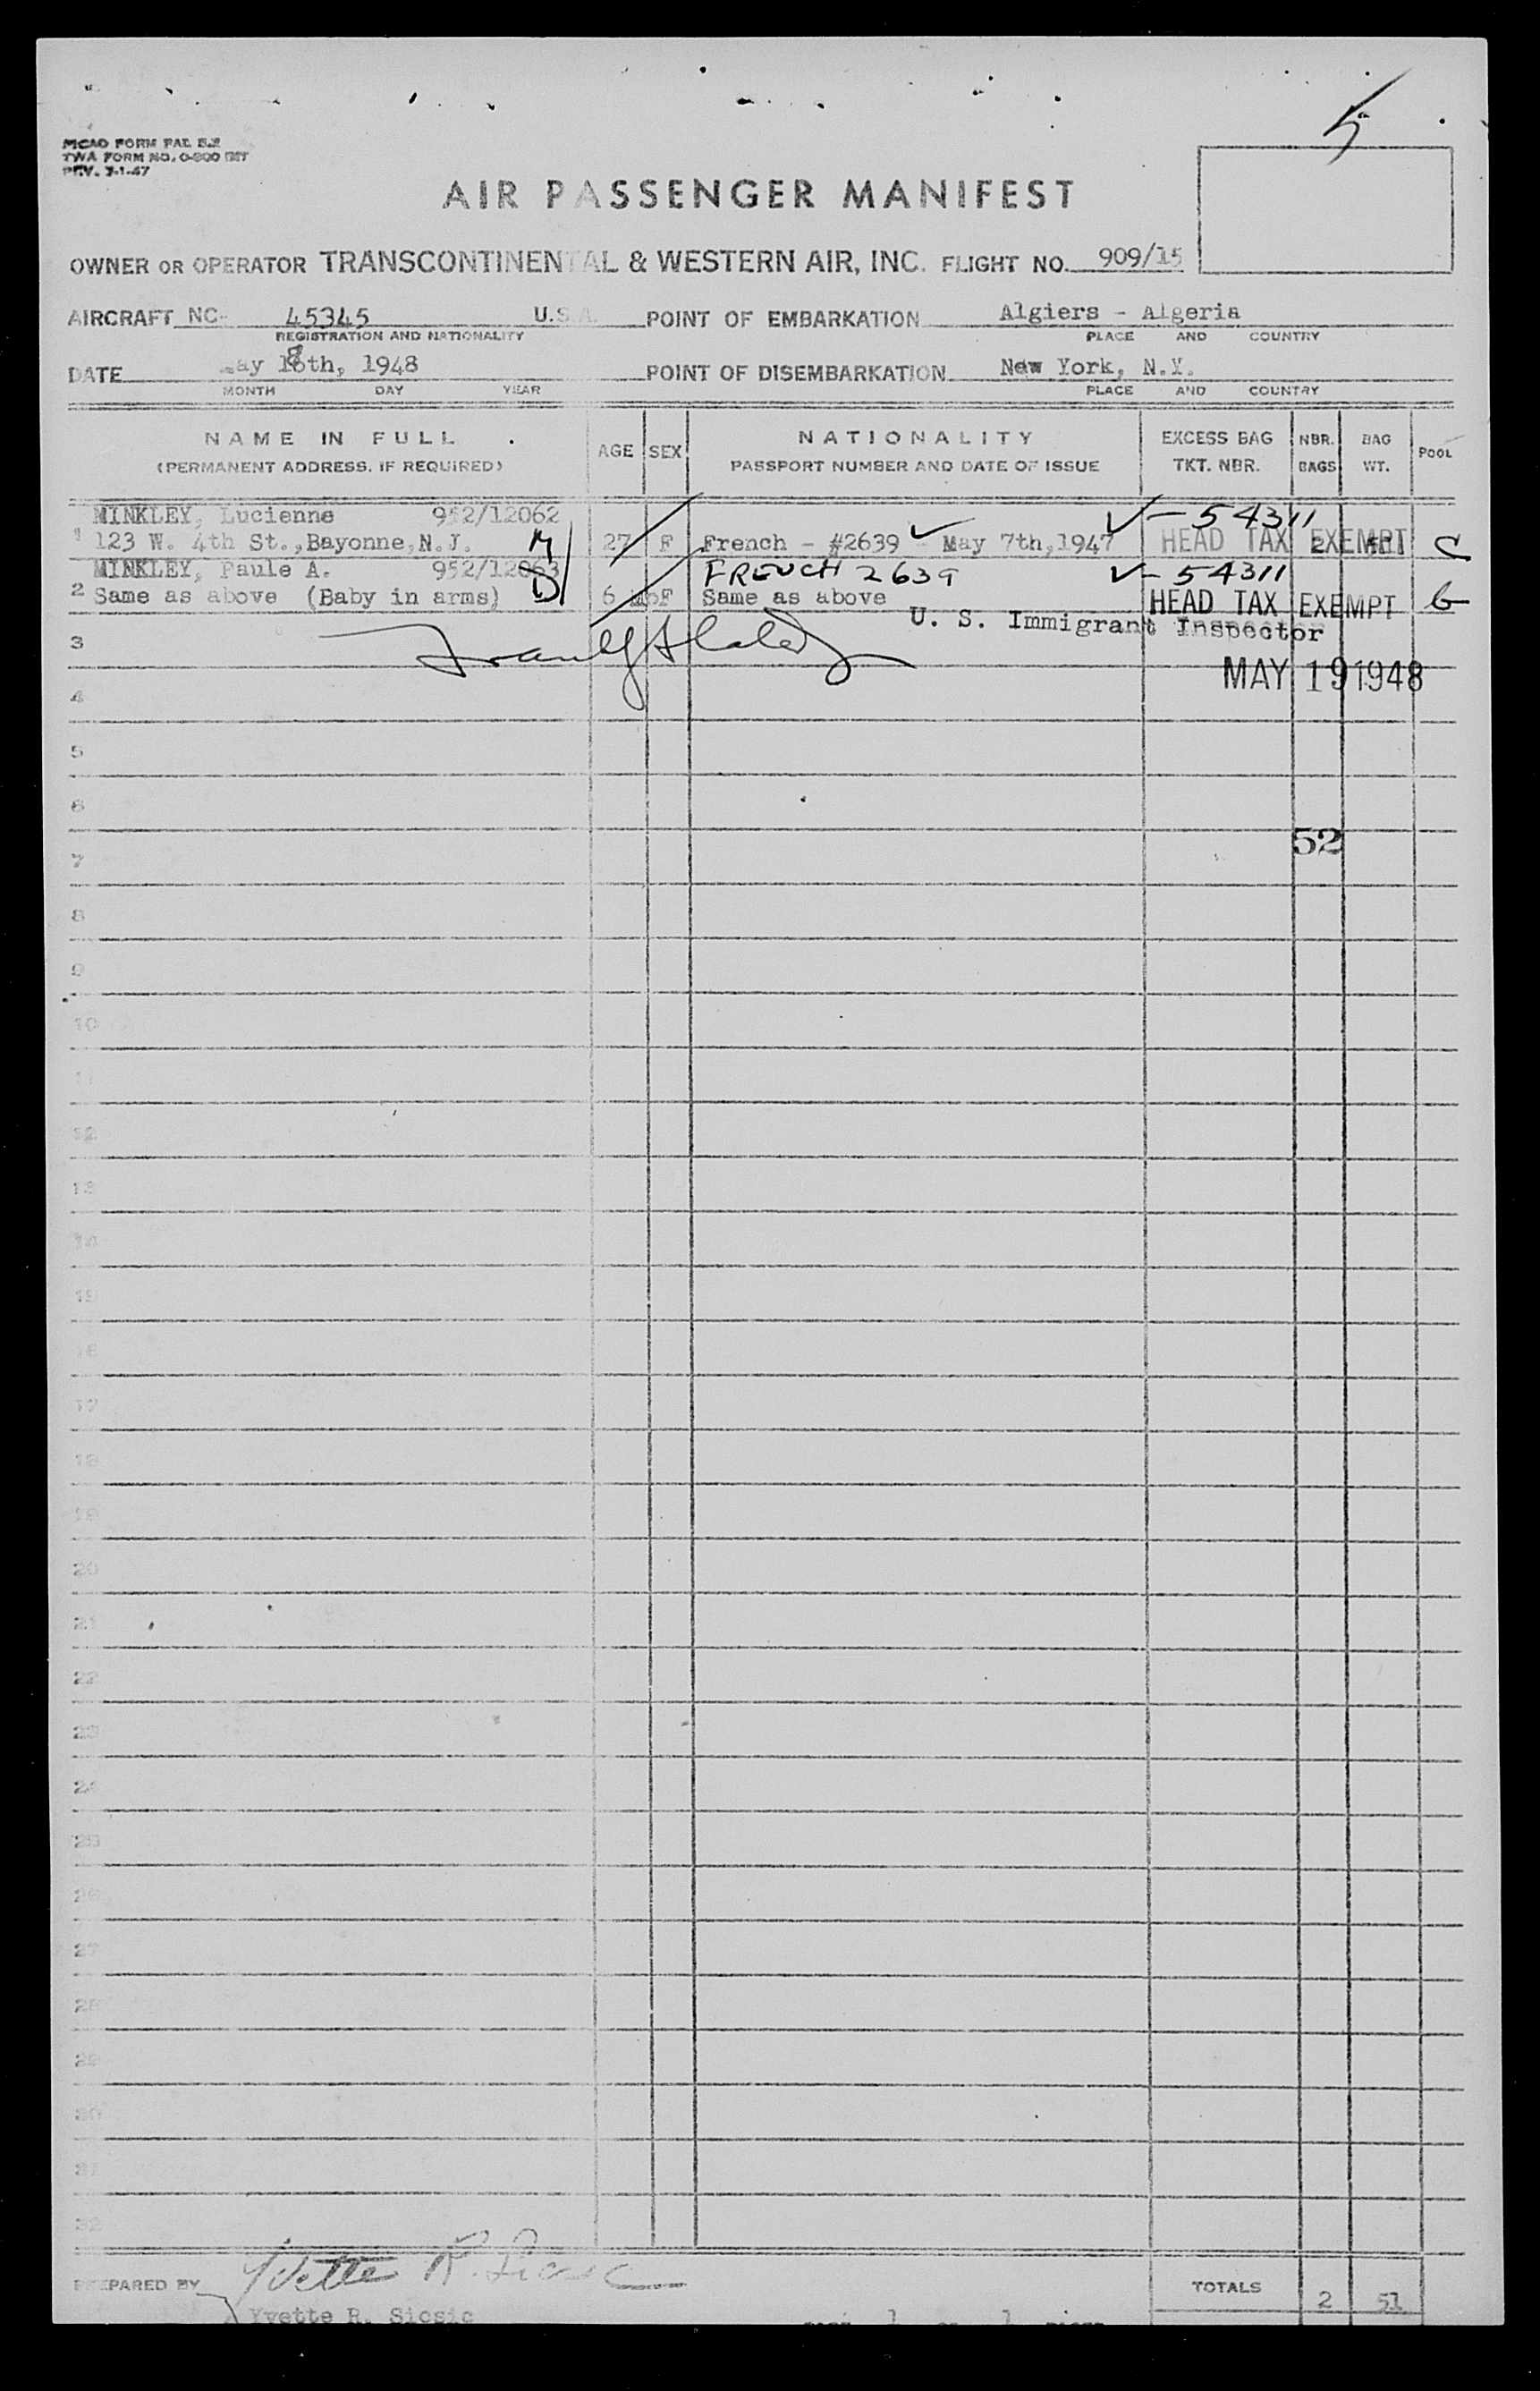 5
MCAD FORM PAL
TWA FORM NO. O-800 INT
REV. 7-1-47
AIR PASSENGER MANIFEST
OWNER OR OPERATOR TRANSCONTINENTAL & WESTERN AIR, INC. FLIGHT NO. 909/15
AIRCRAFT NC- 45345 U.S.A. POINT OF EMBARKATION Algiers - Algeria
REGISTRATION AND NATIONALITY PLACE AND COUNTRY
DATE May 18th, 1948 POINT OF DISEMBARKATION New York, N.Y.
MONTH DAY YEAR PLACE AND COUNTRY
NAME IN FULL AGE SEX NATIONALITY EXCESS BAG NBR. BAG POOL
(PERMANENT ADDRESS, IF REQUIRED) PASSPORT NUMBER AND DATE OF ISSUE TKT. NBR. BAGS WT.
MINKLEY, Lucienne 952/12062 ✓- 54311
1 123 W. 4th St.,Bayonne,N.J. M 27 F French - #2639 ✓ - May 7th,1947 HEAD TAX EXEMPT 2 C
MINKLEY, Paule A. 952/12063 FRENCH 2639 ✓- 54311
2 Same as above (Baby in arms) D 6 mo F Same as above HEAD TAX EXEMPT
U. S. Immigrant Inspector
3
MAY 19 1948
4
5
6
52
7
8
9
10
11
12
13
14
15
16
17
18
19
20
21
22
23
24
25
26
27
28
29
30
31
32
PREPARED BY Yvette R. Sicsic TOTALS 2 51
Yvette R. Sicsic 1 1